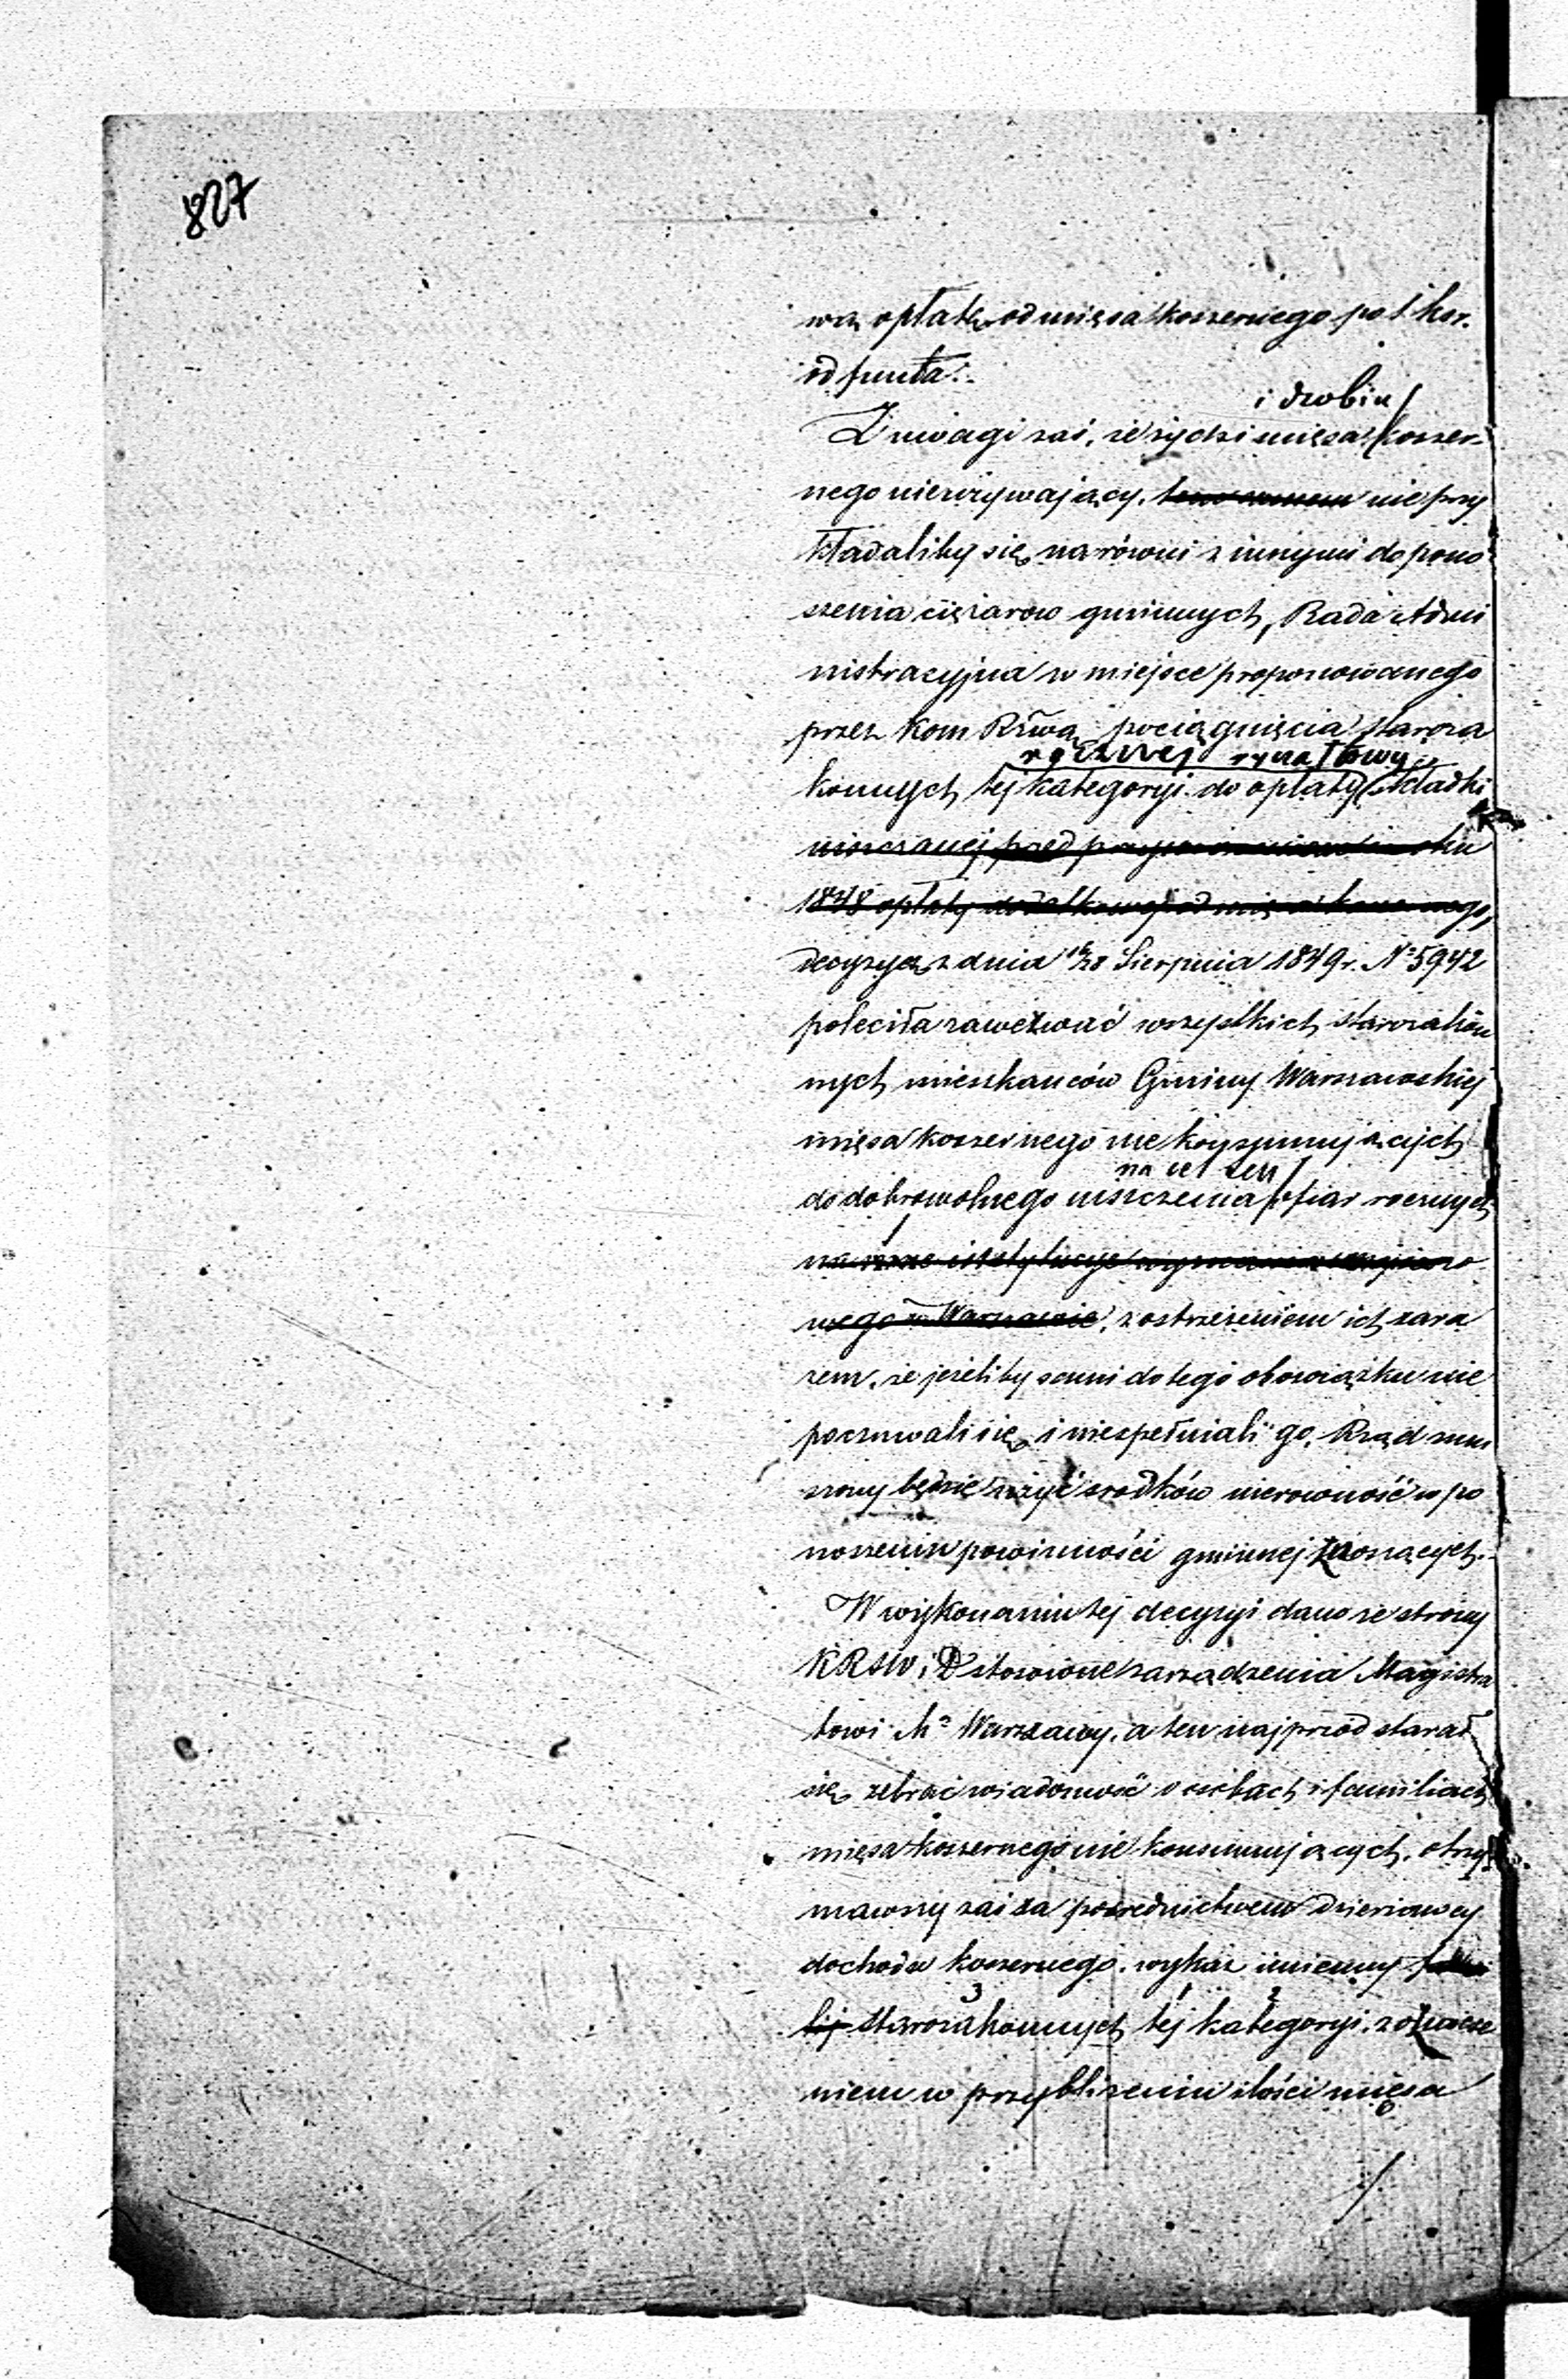 827
wą opłatę od mięsa koszernego po 1 kor.
od funta.
i drobiu
Z uwagi zaś, że żydzi mięsa koszer-
nego nieużywający, nie przy
kładaliby się na równi z innymi do pono
szenia ciężarow gminnych, Rada Admi
nistracyjna w miejsce proponowanego
przez Kom Rzwą pociągnięcia staroza
rocznej ryczałtowy
konnych tej kategoryi do opłaty składki
uiszczanej przed
1848 opłaty dodatkowej od mięsa koszernego,
decyzyą z dnia 16/28 Sierpnia 1849 r. No 5942
poleciła zawezwać wszystkich starozakon
nych mieszkańców Gminy Warszawskiej
mięsa koszernego nie konsumujących
na cel ten
do dobrowolnego uiszczenia ofiar rocznych
na instytucye
wego w Warszawie, z ostrzeżeniem ich zara
zem, że jeżeliby sami do tego obowiązku nie
poczuwali się i niespełniali go, Rząd zmu
szony będzie użyć srodków nierowność w po
noszeniu powinności gminnej znoszących.
W wykonaniu tej decyzyi dano ze strony
KRSW i D stosowne zarządzenia Magistra
towi Ma Warszawy, a ten najprzod starał
się zebrać wiadomość o osobach i familiach
mięsa koszernego nie konsumujących, otrzy
mawszy zaś za pośrednictwem dzierżawcy
dochodu koszernego, wykaz imienny
3 1 2
lij starozakonnych tej kategoryi, z oznacze
niem w przybliżeniu ilości mięsa